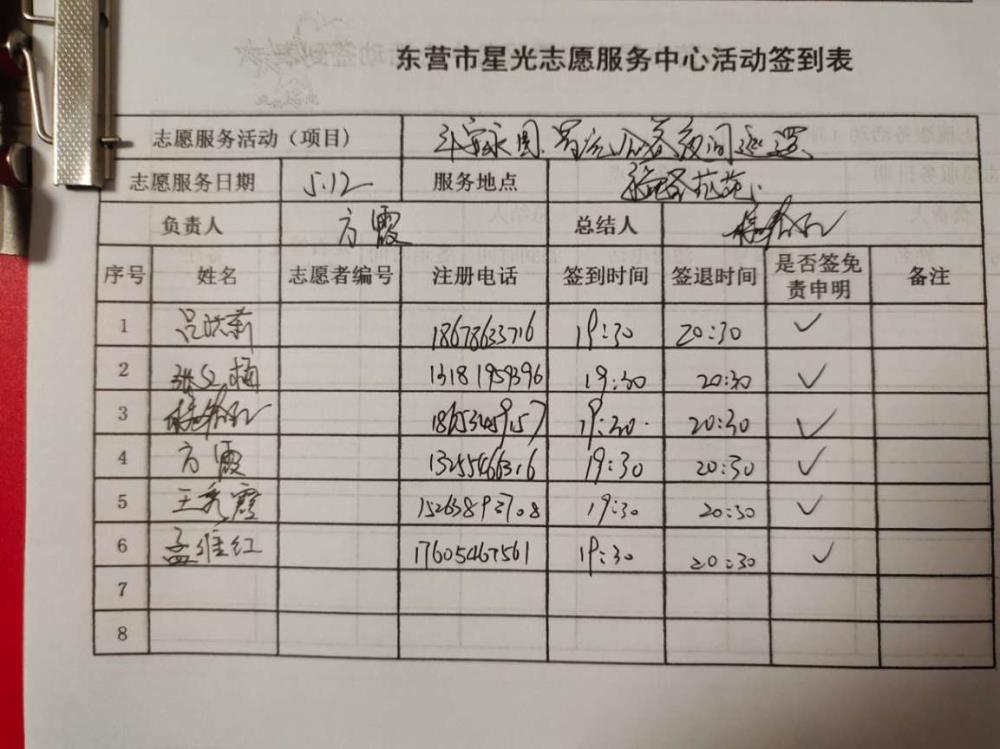 东营市星光志愿服务中心活动签到表
志愿服务活动（项目） 夜间巡逻
志愿服务日期 5.12 服务地点
负责人 方霞 总结人
序号 姓名 志愿者编号 注册电话 签到时间 签退时间 是否签免责申明 备注
1 吕洪莉 18678633716 19:30 20:30 ✓
2 张文梅 13181959396 19:30 20:30 ✓
3 19:30 20:30 ✓
4 方霞 13255466316 19:30 20:30 ✓
5 王秀霞 15263892708 19:30 20:30 ✓
6 孟维红 17605467561 19:30 20:30 ✓
7
8